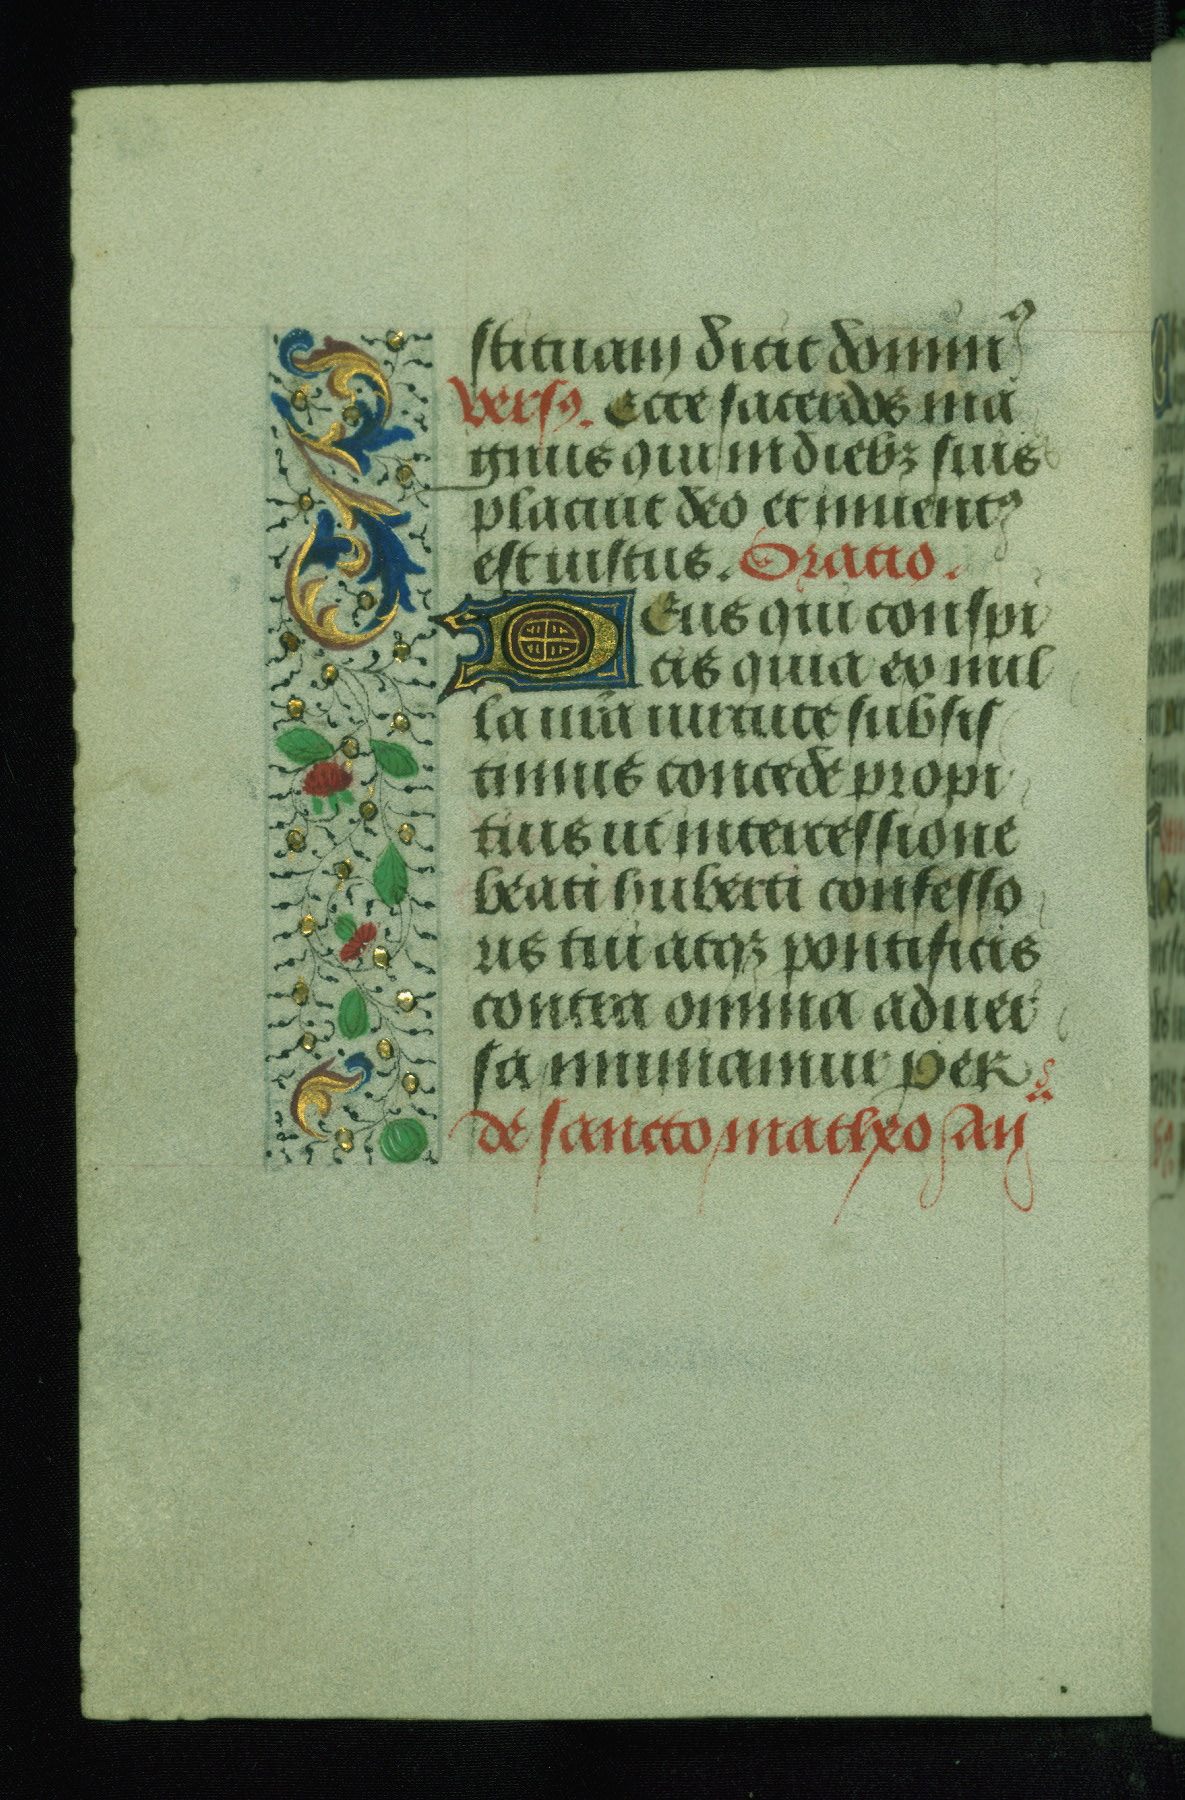 stituam dicit domin⁹
vers⁹. Ecce sacerdos ma
gnus qui in dieb₃ suis
placuit deo et inuent⁹
est iustus. Oratio.
Deus qui conspi
cis quia ex nul
la n̄ra uirtute subsis
timus concede propi
tius ut intercessione
beati huberti confesso
ris tui atq₃ pontificis
contra omnia aduer
sa muniamur per
de sancto matheo An̄